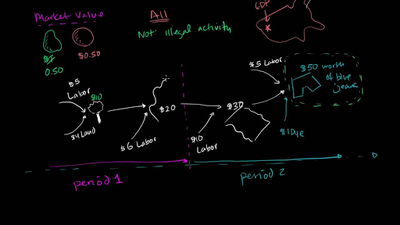 Market Value
All
GDP
Not illegal activity
$1
0.50
$0.50
$5
Labor
$10
$4 Land
$20
$6 Labor
$30
$10
Labor
$5 Labor
$50 worth
of blue
jeans
$1 Dye
period 1
period 2